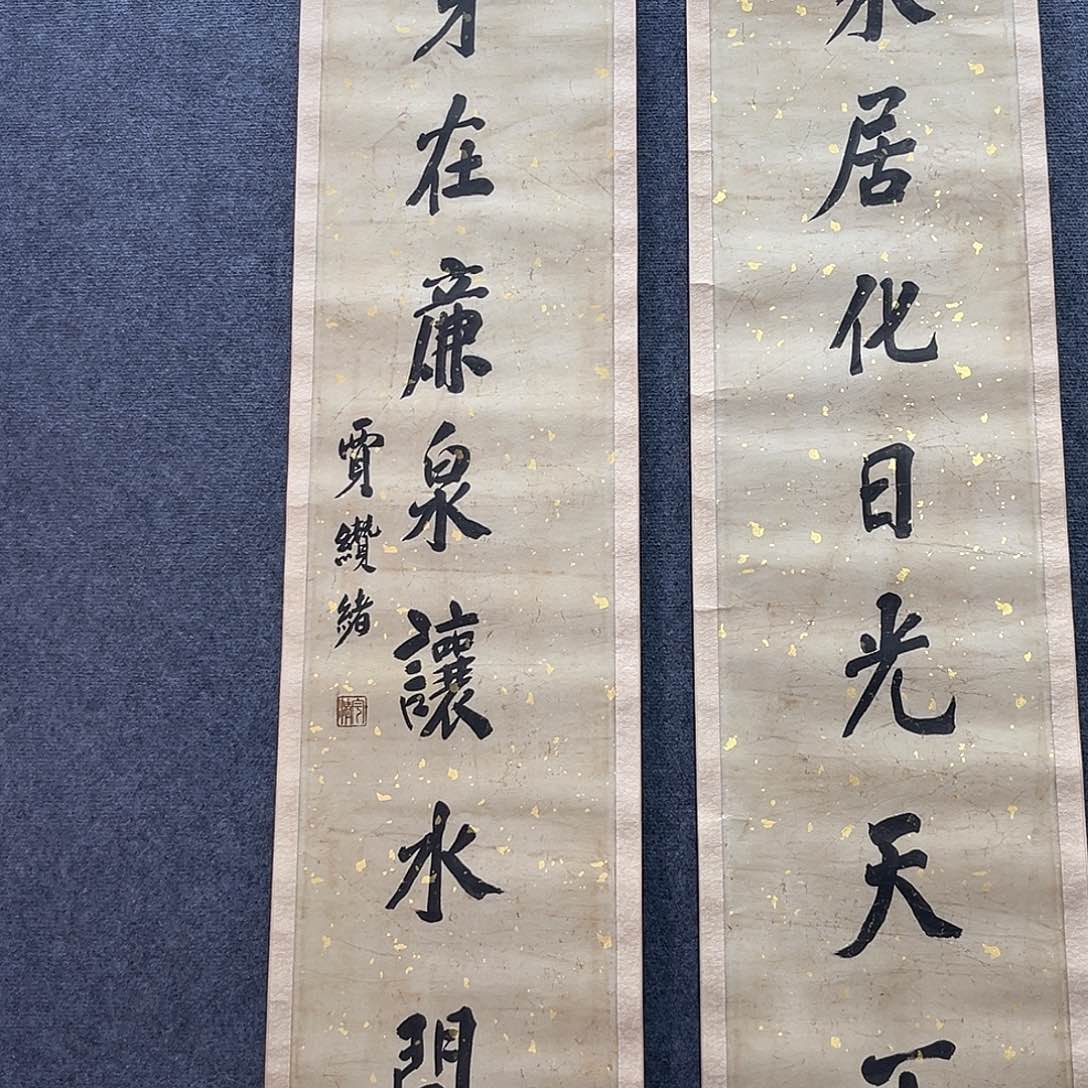 居化日光天下
身在廉泉讓水間
賈纘緒